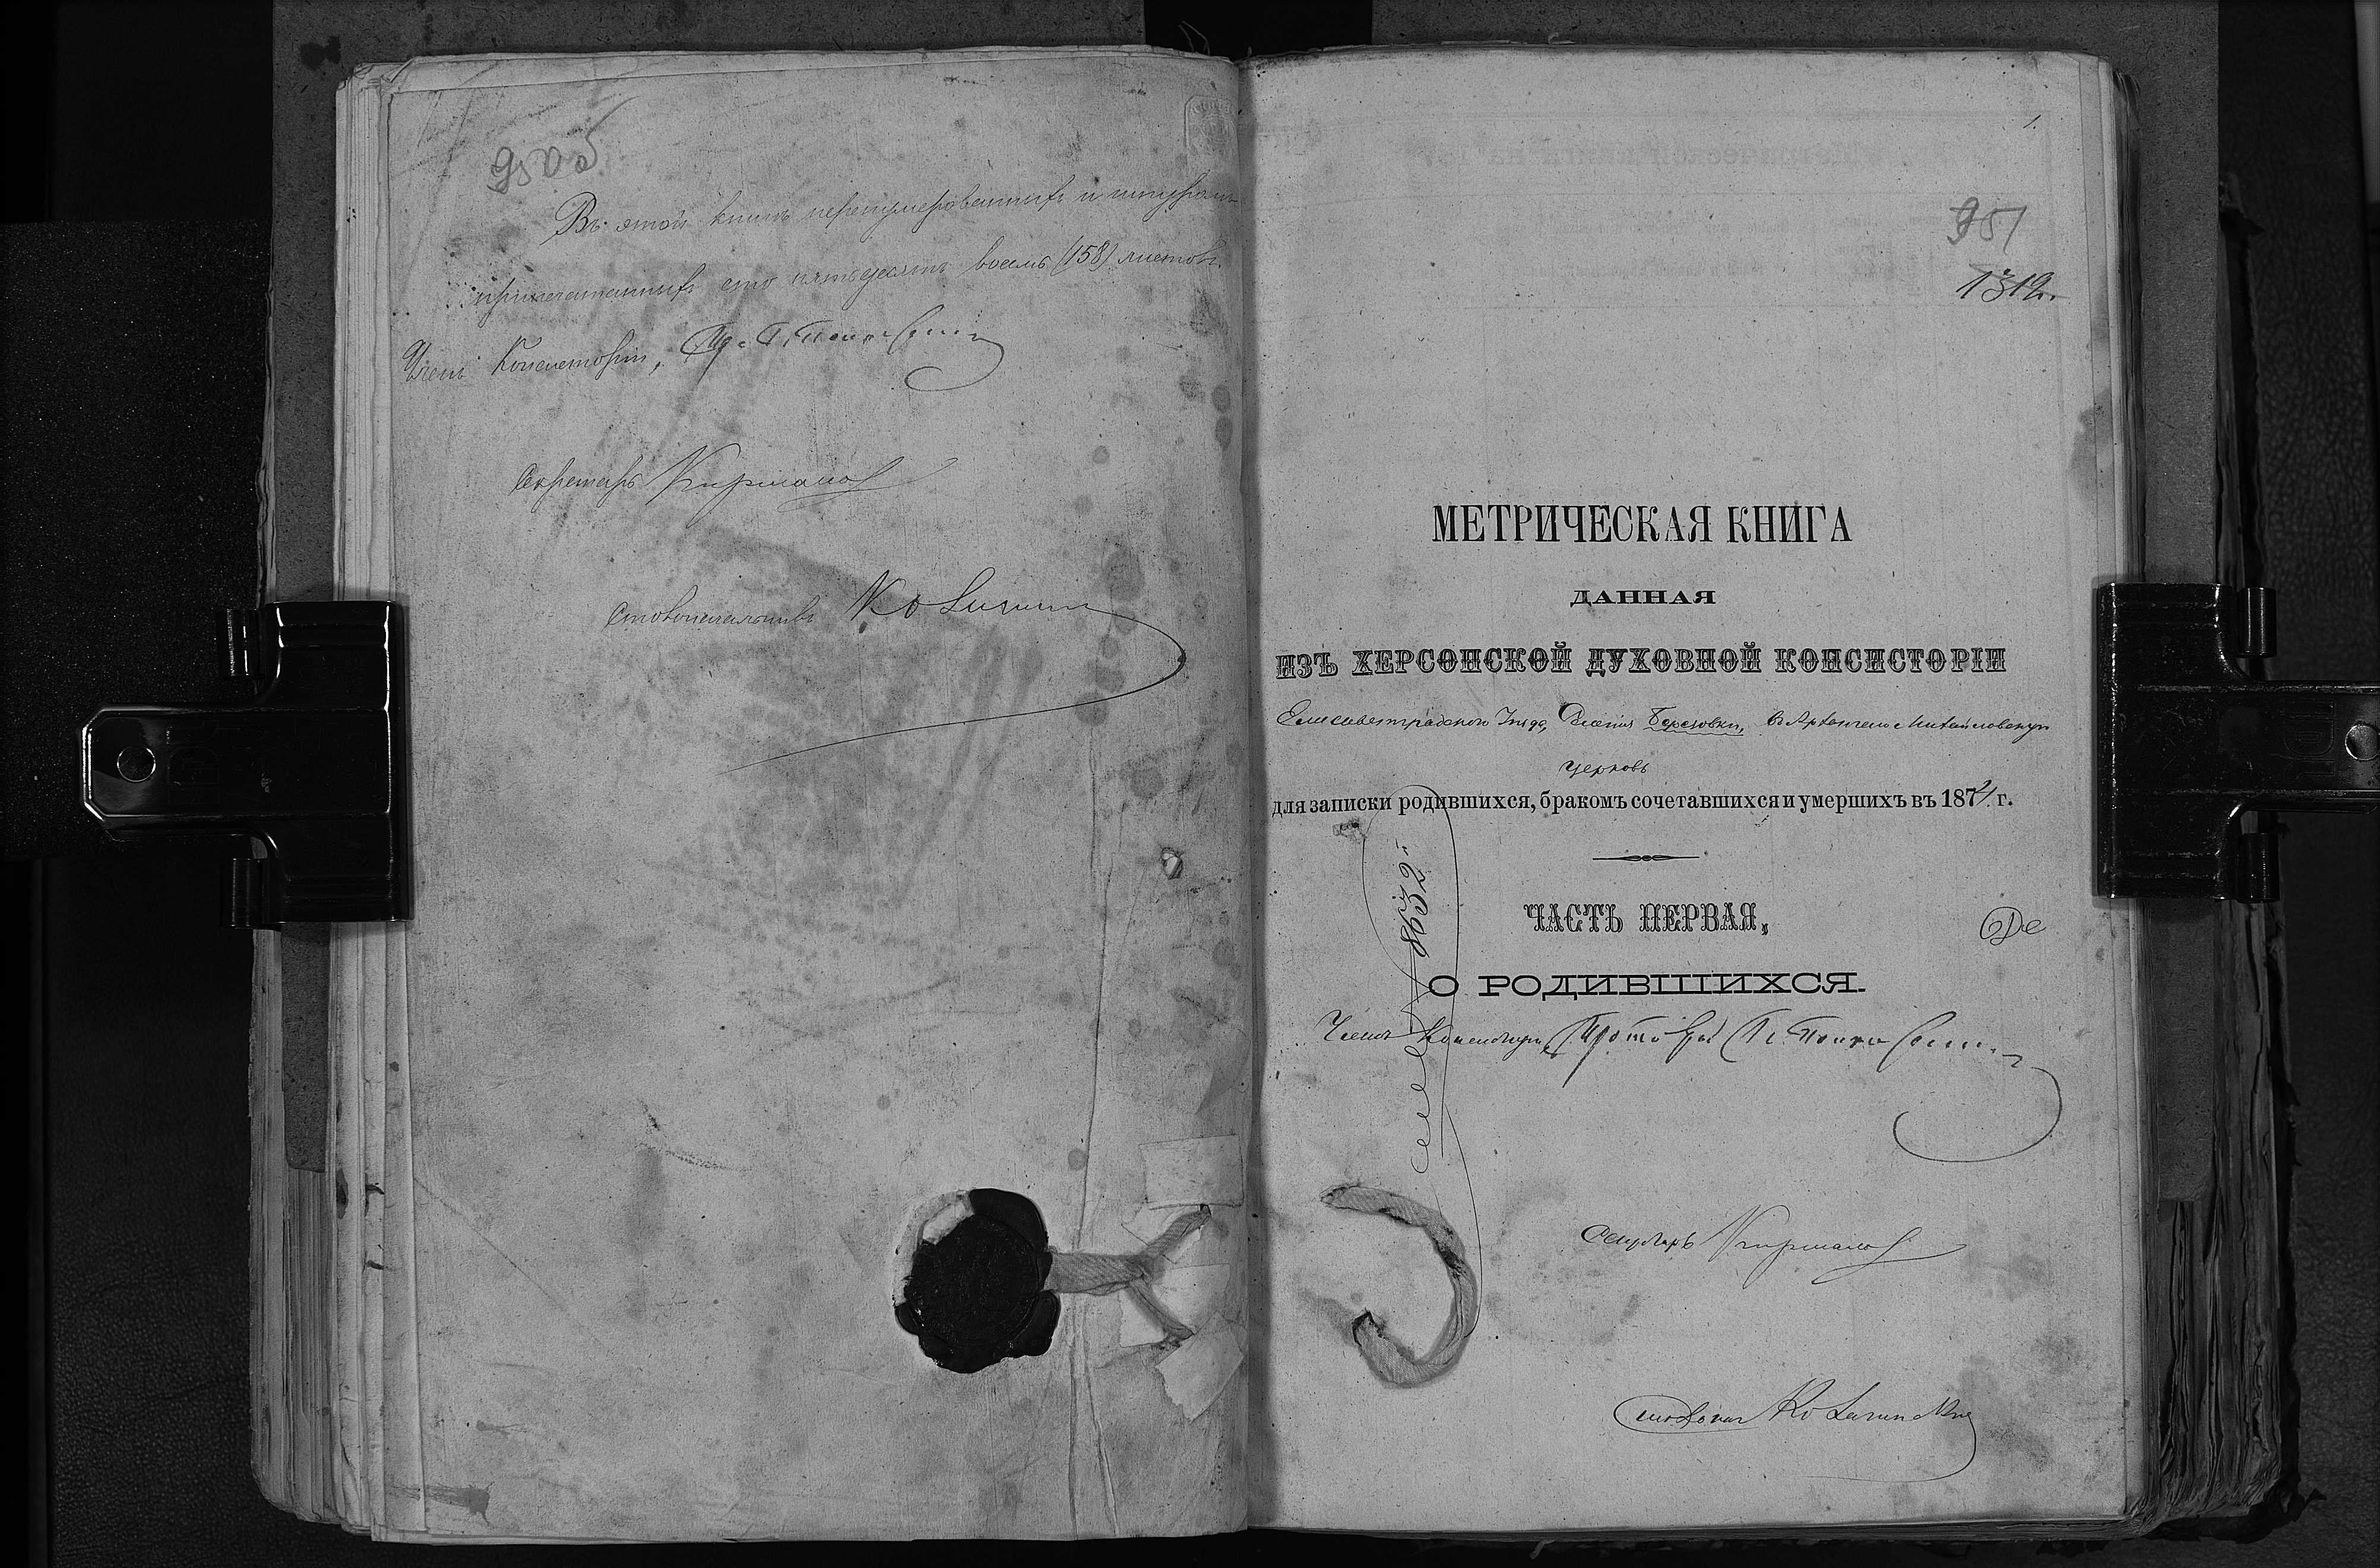 950 об
Въ этой книгѣ перенумерованныхъ и шнуромъ
припечатанныхъ сто пятьдесятъ восемь (158) листовъ.
Членъ Консисторіи,
Секретарь
Столоначальникъ
1.
951
1312.
МЕТРИЧЕСКАЯ КНИГА
ДАННАЯ
ИЗЪ ХЕРСОНСКОЙ ДУХОВНОЙ КОНСИСТОРІИ
Елисаветградскаго Уѣзда, Березовки, въ Архангело Михайловскую
церковь
для записки родившихся, бракомъ сочетавшихся и умершихъ въ 1874 г.
8632
ЧАСТЬ ПЕРВАЯ,
О РОДИВШИХСЯ.
Членъ Консисторіи, Протоіерей
Секретарь